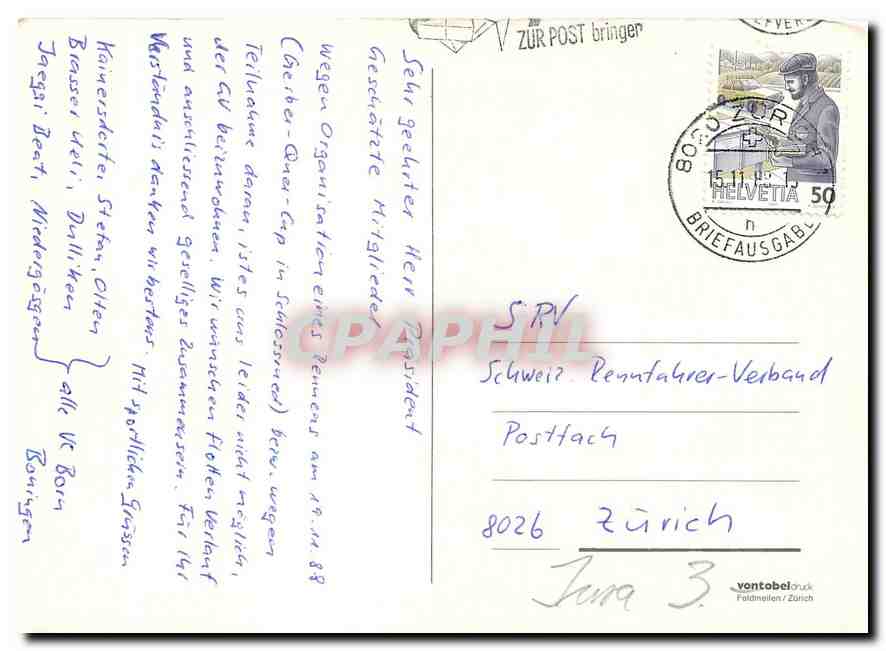 ZUR POST bringen
8020 ZÜRI
15.11.88
BRIEFAUSGABE
n
HELVETIA 50
Sehr geehrter Herr Präsident
Geschätzte Mitglieder
Wegen Organisation eines Rennens am 19.11.88
(Gerber-Quer-Cup in Schlossrued) bezw. wegen
Teilnahme daran, ist es uns leider nicht möglich,
der GV beizuwohnen. Wir wünschen flotten Verlauf
und anschliessend geselliges Zusammensein. Für Ihr
Verständnis danken wir bestens. Mit sportlichen Grüssen
Kainersdorfer Stefan, Olten
Brasser Ueli, Dulliken
Jaeggi Beat, Niedergösgen
alle VC Born
Boningen
SRV
Schweiz. Rennfahrer-Verband
Postfach
8026 Zürich
Jura 3.
vontobeldruck
Feldmeilen / Zürich
CPAPHIL